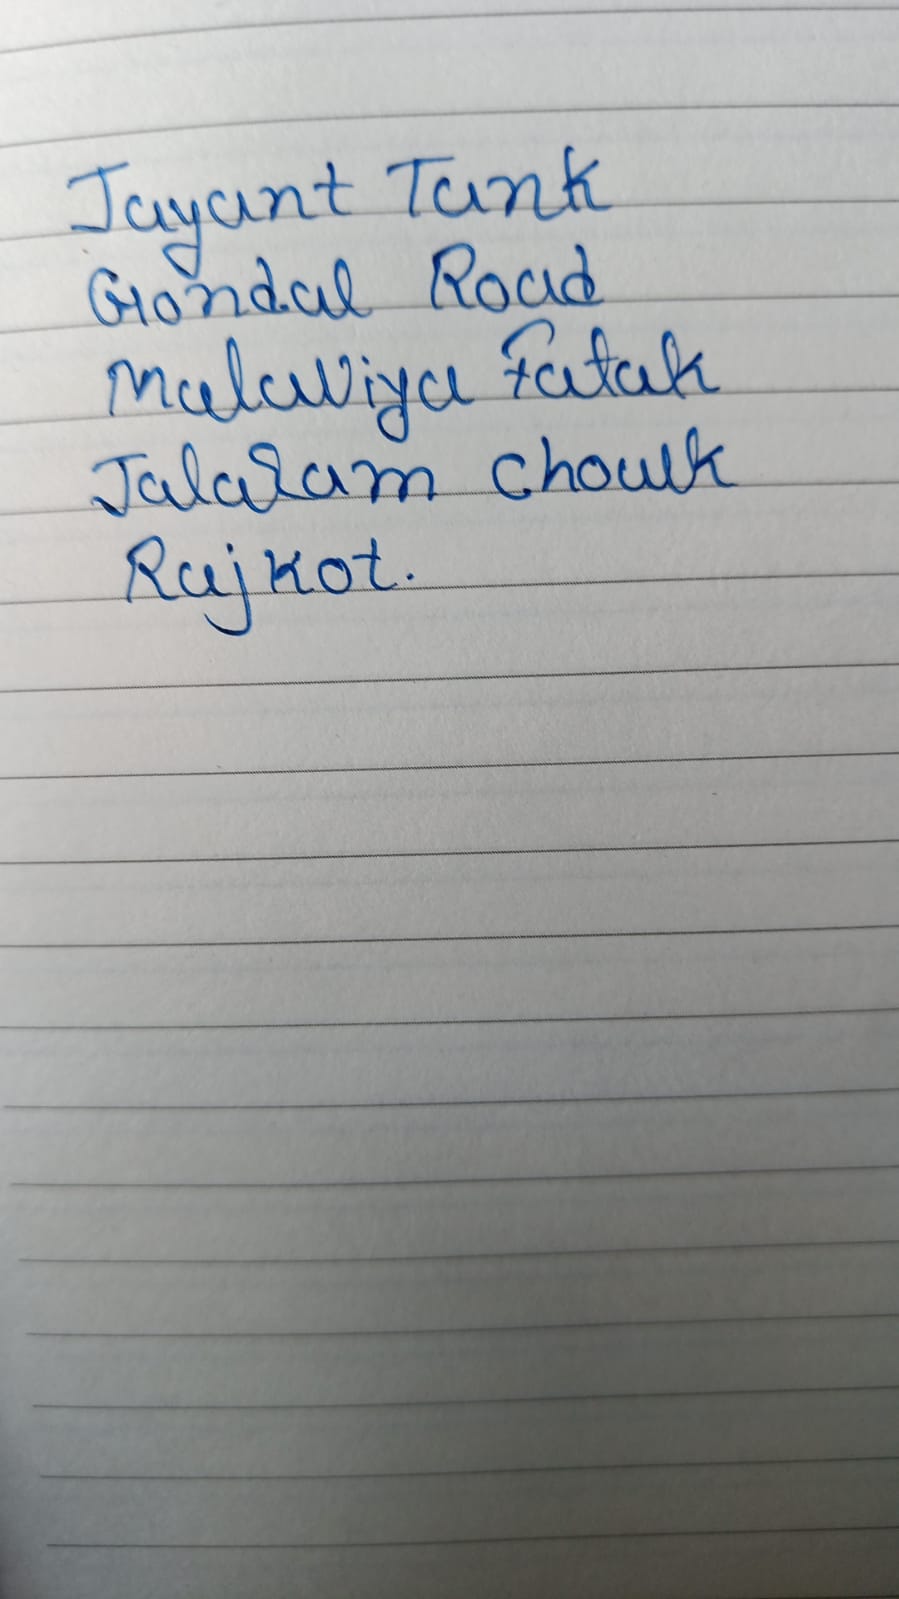 Jayant Tank
Gondal Road
Malaviya Fatak
Jalaram chowk
Rajkot.